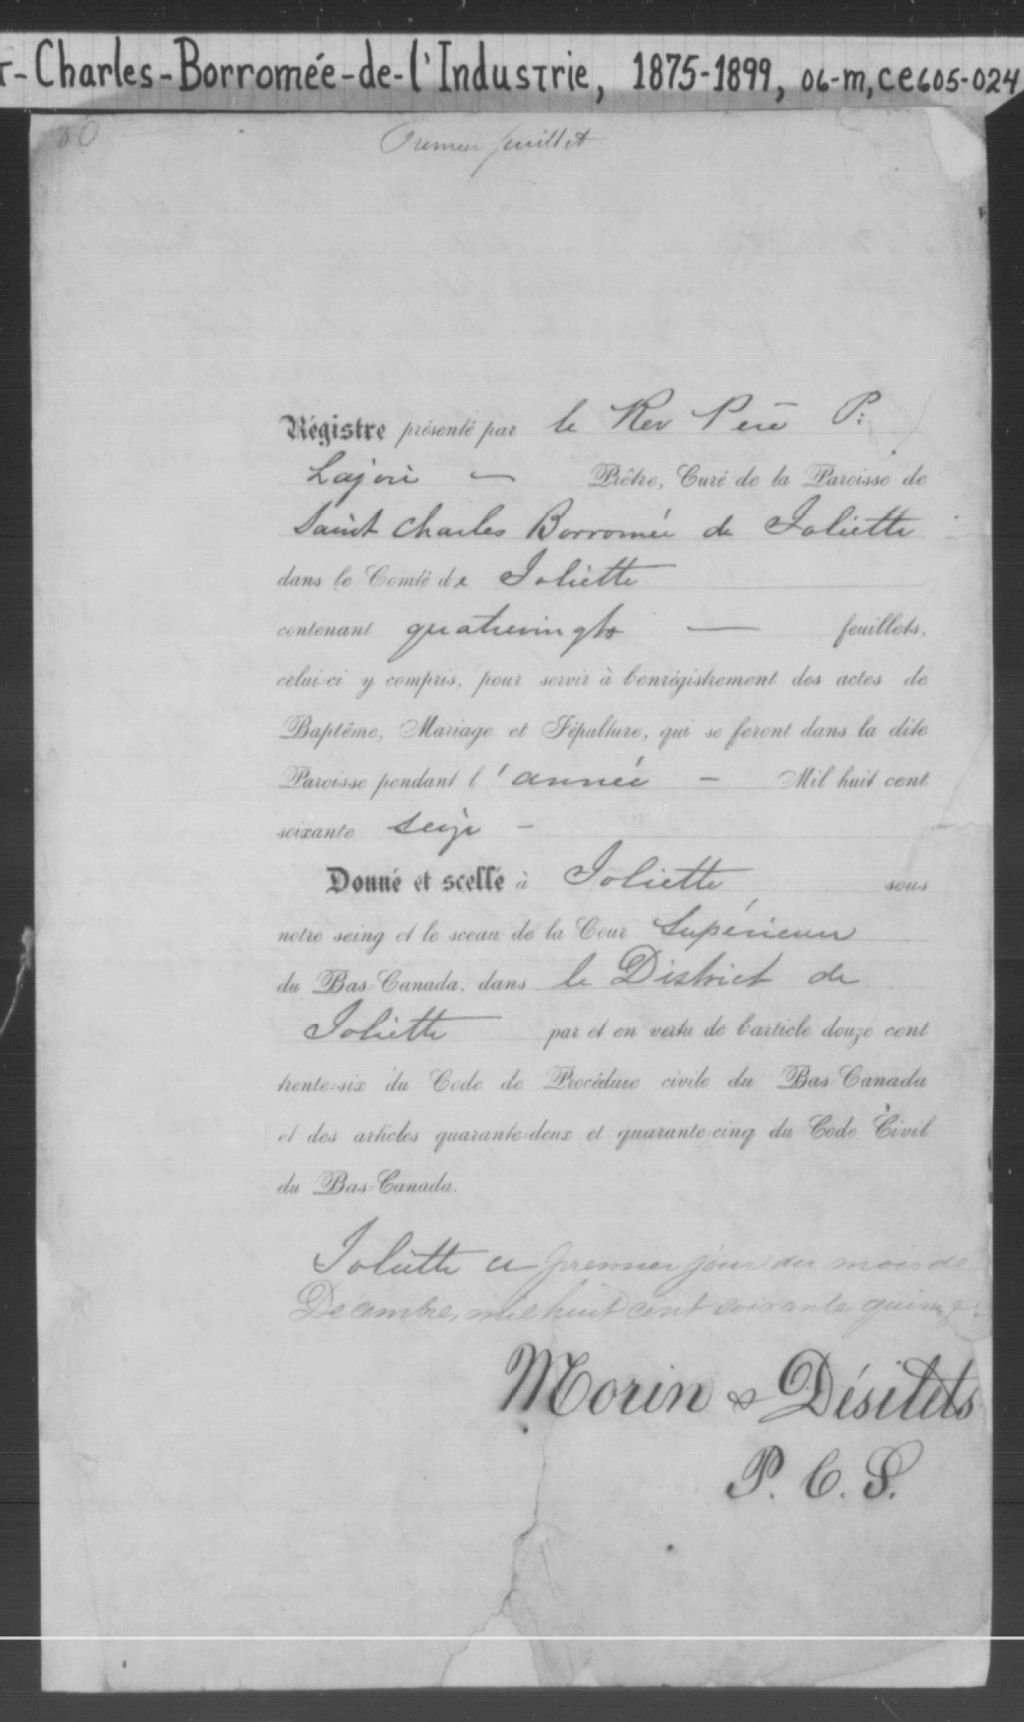 T-Charles-Borromée-de-l'Industrie, 1875-1899, 06-m, CE605-024
80
Premier feuillet
Régistre présenté par le Rev Père P:
Lajoie — Prêtre, Curé de la Paroisse de
Saint Charles Borromée de Joliette
dans le Comté de Joliette
contenant quatrevingts — feuillets,
celui-ci y compris, pour servir à l'enrégistrement des actes de
Baptême, Mariage et Sépulture, qui se feront dans la dite
Paroisse pendant l'année — Mil huit cent
soixante seize —
Donné et scellé à Joliette sous
notre seing et le sceau de la Cour Supérieure
du Bas-Canada, dans le District de
Joliette par et en vertu de l'article douze cent
trente-six du Code de Procédure civile du Bas-Canada
et des articles quarante-deux et quarante-cinq du Code Civil
du Bas-Canada.
Joliette ce premier jour du mois de
Décembre, mil huit cent soixante quinze
Morin & Désilets
P. C. S.